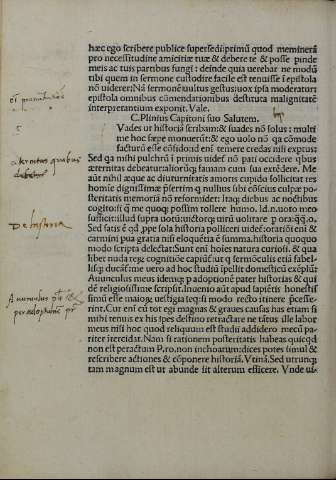 hæc ego scribere publice supersedi:primū quod memineră
pro necessitudine amicitiæ tuæ & debere te & posse pinde
meis ac tuis partibus fungi: deinde quia uerebar ne modū
tibi quem in sermone custodire facile est tenuisse ī epistola
nō uiderer: Nā sermonē uultus gestus: uox ipsa moderatur:
epistola omnibus cōmendationibus destituta malignitatē
interpretantium exponit. Vale.
C. Plinius Capitoni suo Salutem.
Vades ut historiā scribam: & suades nō solus: multi
me hoc sæpe monuerūt: & ego uolo nō qa cōmode
facturū esse cōfido: id eni temere credas nisi exptus
Sed qa mihi pulchrū ī primis uidet nō pati occidere qbus
æternitas debeatur: aliorūq; famam cum sua extēdere. Me
aūt nihil æque ac diuturnitatis amor & cupido sollicitat res
homie dignissima: psertim q nullius sibi cōscius culpæ po-
steritatis memoriā nō reformidet: Itaq; diebus ac noctibus
cogito: si q me quoq; possim tollere humo. Id. n. uoto meo
sufficit: illud supra uotū: uictorq; uirū uolitare p ora: qq. o.
Sed satis ē qd ppe sola historia polliceri uidet: oratiōi eni &
carmini pua gratia nisi eloquētia ē summa. historia quoquo
modo scripta delectat: Sunt eni hoies natura curiosi. & qua
libet nuda reg; cognitiōe capiūt ut q sermōculis etiā fabel-
lisq; ducat: me uero ad hoc studiū īpellit domesticū exēplū:
Auunculus meus idemq; p adoptionē pater historias & qui
dē religiosissime scripsit. Inuenio aūt apud sapiētes honestif
simū esse maiog; uestigia seq: si modo recto itinere pcesse-
rint. Cur eni cū tot egi magnas & graues causas has etiam si
mihi tenuis ex his spes destino retractare ne tātus ille labor
meus nisi hoc quod reliquum est studii addidero mecū pa-
riter ītercidat. Nam si rationem posteritatis habeas quicqd
non est peractum p.ro.non inchoatum: dices potes simul &
rescribere actiones & cōponere historiā. Vtinā. Sed utrunq;
tam magnum est ut abunde sit alterum efficere. Vnde ui-
De historia